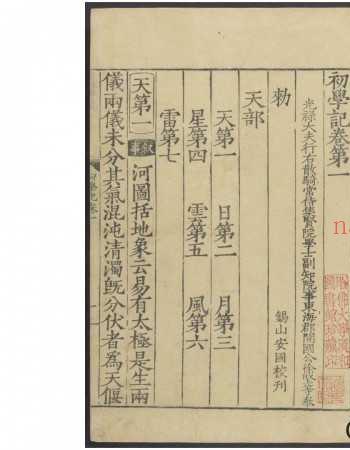 初學記卷第一
光祿大夫行右散騎常侍集賢院學士副知院事東海郡開國公徐堅等奉
錫山安國校刊
勑
天部
天第一 日第二 月第三
星第四 雲第五 風第六
雷第七
天第一 叙事 河圖括地象云易有太極是生兩
儀兩儀未分其氣混沌清濁旣分伏者為天偃